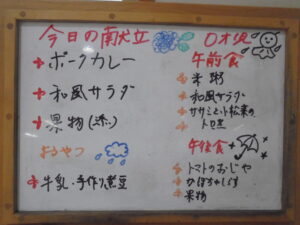 今日の献立
ポークカレー
和風サラダ
果物(添)
おやつ
牛乳・手作り煮豆
0才児
午前食
米粥
和風サラダ
ササミと小松菜の
トロ煮
午後食
トマトのおじや
かぼちゃしらす
果物